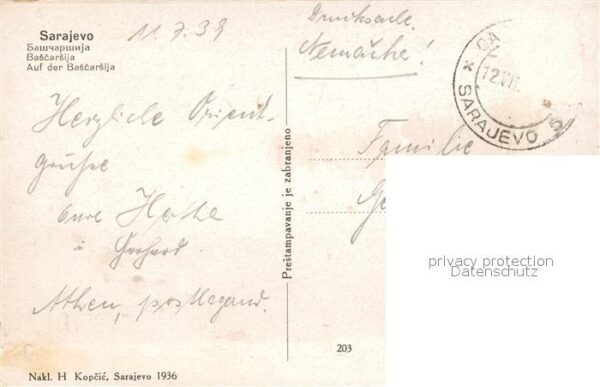 Sarajevo
Башчаршија
Baščaršija
Auf der Baščaršija
11.7.39
Herzliche Orient-
grüße
eure
Gerhard.
Athen, postlagernd.
Drucksache.
Nemačke!
Familie
SARAJEVO
12.VII.
Preštampavanje je zabranjeno
203
Nakl. H Kopčić, Sarajevo 1936
privacy protection
Datenschutz